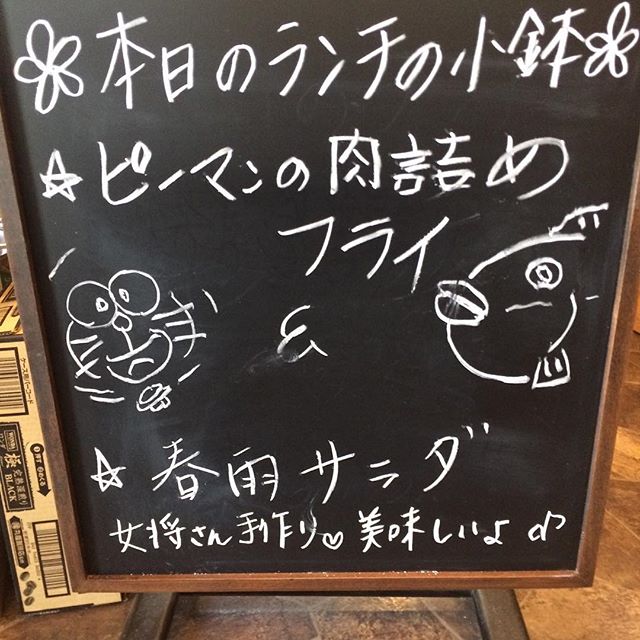 本日のランチの小鉢
☆ピーマンの肉詰め
フライ
&
☆春雨サラダ
女将さん手作り♡美味しいよ♪
BLACK